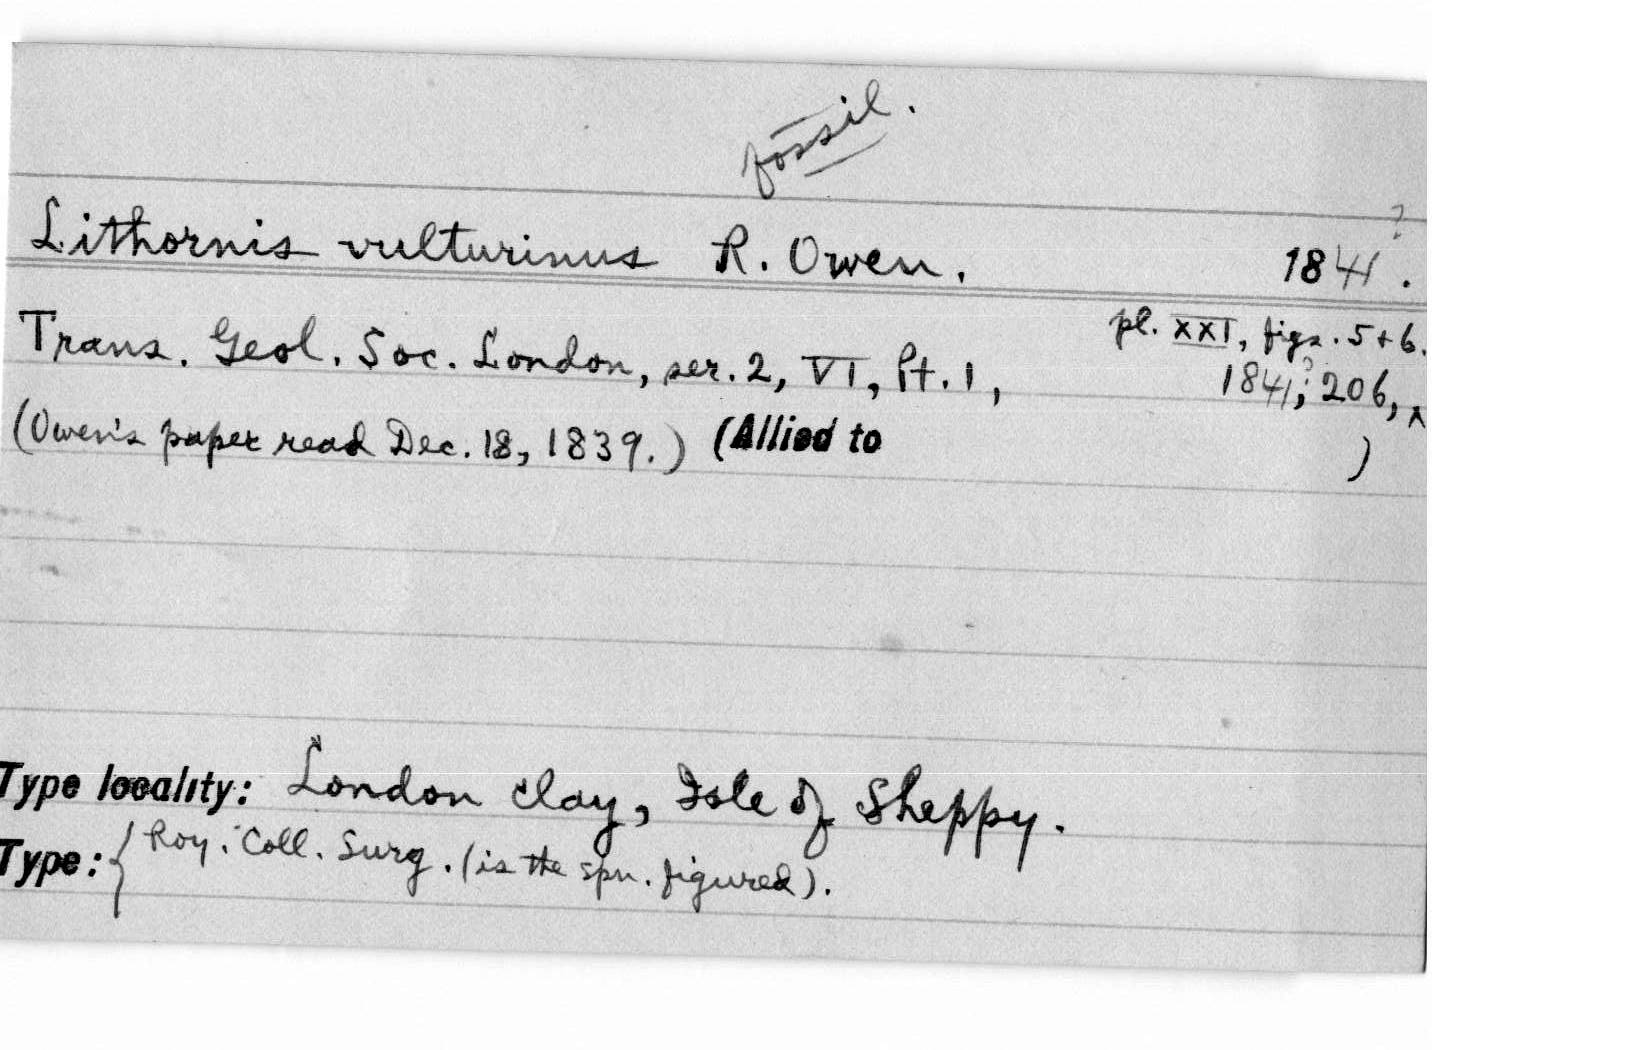 fossil.
?
Lithornis vulturinus R. Owen. 1841.
pl. XXI, figs. 5+6.
Trans. Geol. Soc. London, ser. 2, VI, Pt. 1, 1841?; 206, ^
(Owen's paper read Dec. 18, 1839.) (Allied to )
Type locality: London clay, Isle of Sheppy.
Type: { Roy. Coll. Surg. (is the spn. figured).